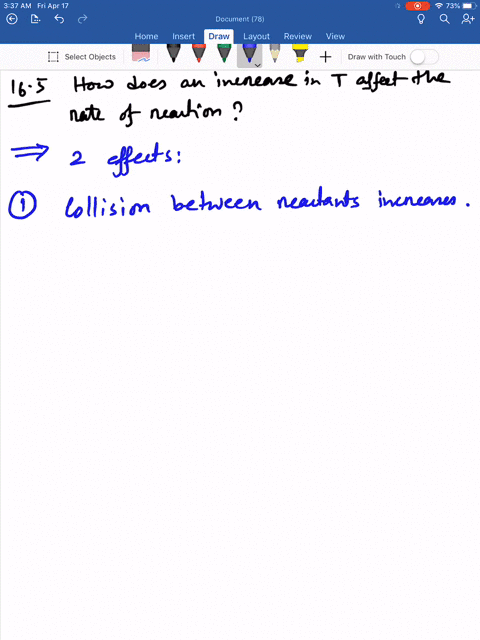 3:37 AM Fri Apr 17
73%
Document (78)
Home Insert Draw Layout Review View
Select Objects
Draw with Touch
16.5 How does an increase in T affect the
rate of reaction?
⇒ 2 effects:
① Collision between reactants increases.